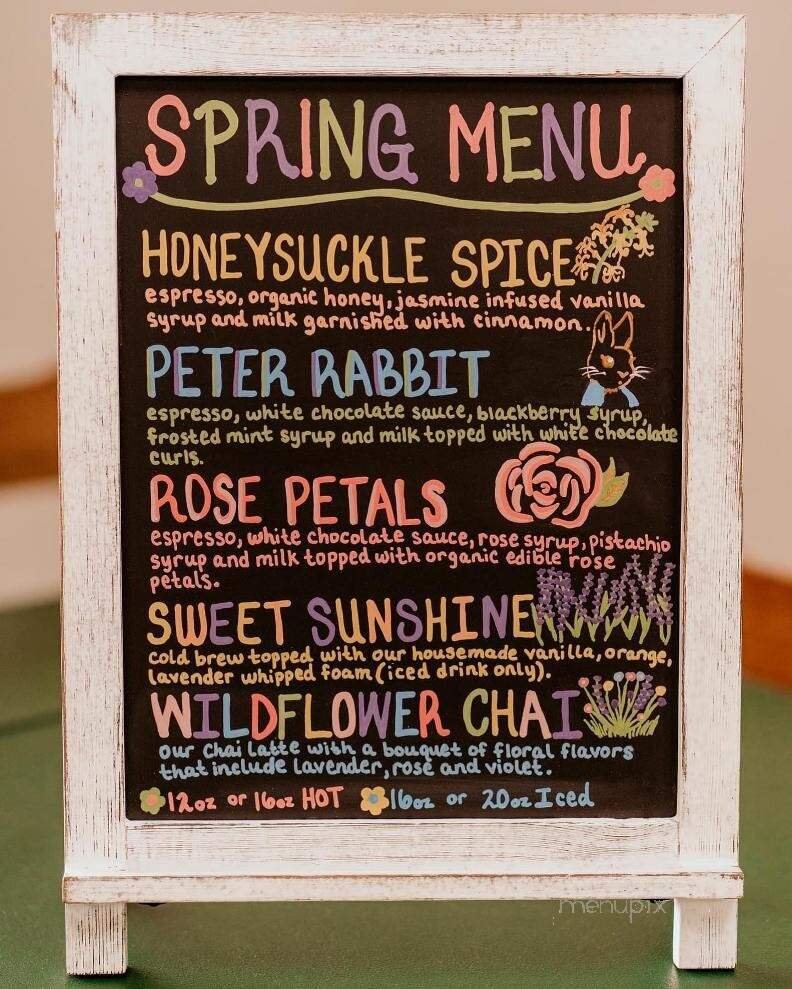 SPRING MENU
HONEYSUCKLE SPICE
espresso, organic honey, jasmine infused vanilla
syrup and milk garnished with cinnamon.
PETER RABBIT
espresso, white chocolate sauce, blackberry syrup,
frosted mint syrup and milk topped with white chocolate
curls.
ROSE PETALS
espresso, white chocolate sauce, rose syrup, pistachio
syrup and milk topped with organic edible rose
petals.
SWEET SUNSHINE
cold brew topped with our housemade vanilla, orange,
lavender whipped foam (iced drink only).
WILDFLOWER CHAI
our chai latte with a bouquet of floral flavors
that include lavender, rose and violet.
12oz or 16oz HOT 16oz or 20oz Iced
menupix